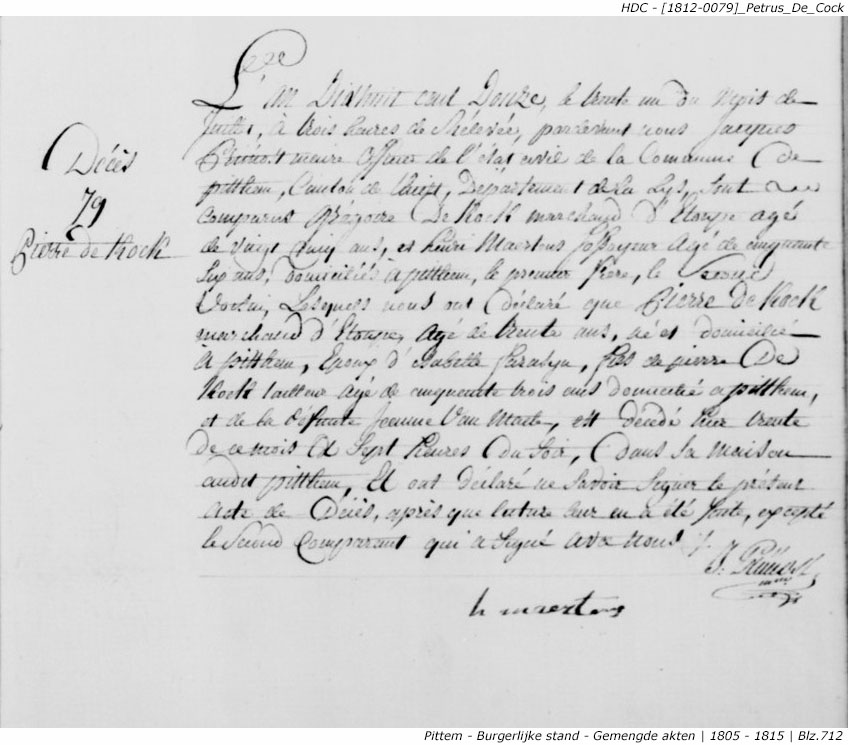 HDC - [1812-0079]_Petrus_De_Cock
L'an Dixhuit cent Douze, le trente un du Mois de
Juillet, à trois heures de Rélevée, pardevant nous Jacques
meure officier de l'état civil de la Commune De
pitthem, Canton de thielt, Département de la Lys, sont
comparus Grégoire De Kock marchand d'Etoupe agé
de vingt ans, et henri Maertens fossoyeur Agé de cinquante
six ans, domiciliés à pitthem, le premier frère, le Second
Voisin, Lesquels nous ont Déclaré que Pierre De Kock
marchand d'Etoupe, agé de trente ans, né et domicilié
à pitthem, Epoux d'Isabelle fils de pierre De
Kock tailleur agé de cinquante trois ans domicilié a pitthem,
et de la défunte Jeanne Van est décédé hier trente
de ce mois à Sept heures Du Soir, Dans sa Maison
audit pitthem, Et ont déclaré ne Savoir Signer le présent
Acte de Décès, après que lecture leur en a été faite, excepté
le Second Comparant qui a Signé avec nous
Décès
79
Pierre de Kock
h maertens
Pittem - Burgerlijke stand - Gemengde akten | 1805 - 1815 | Blz.712